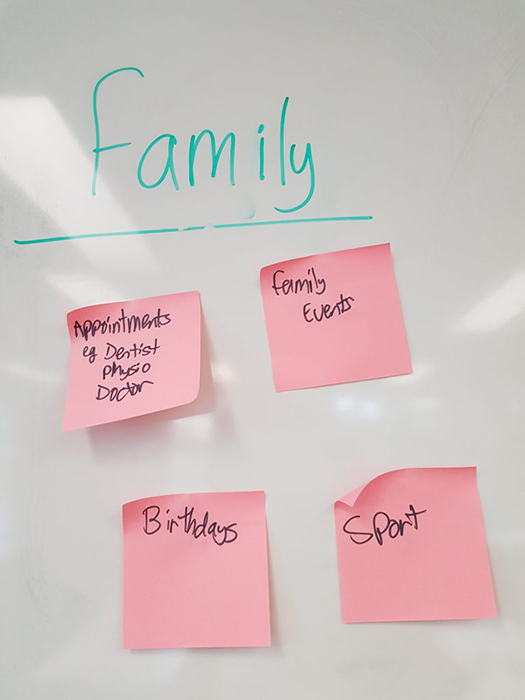 Family
Appointments
eg Dentist
Physio
Doctor
Family
Events
Birthdays
Sport